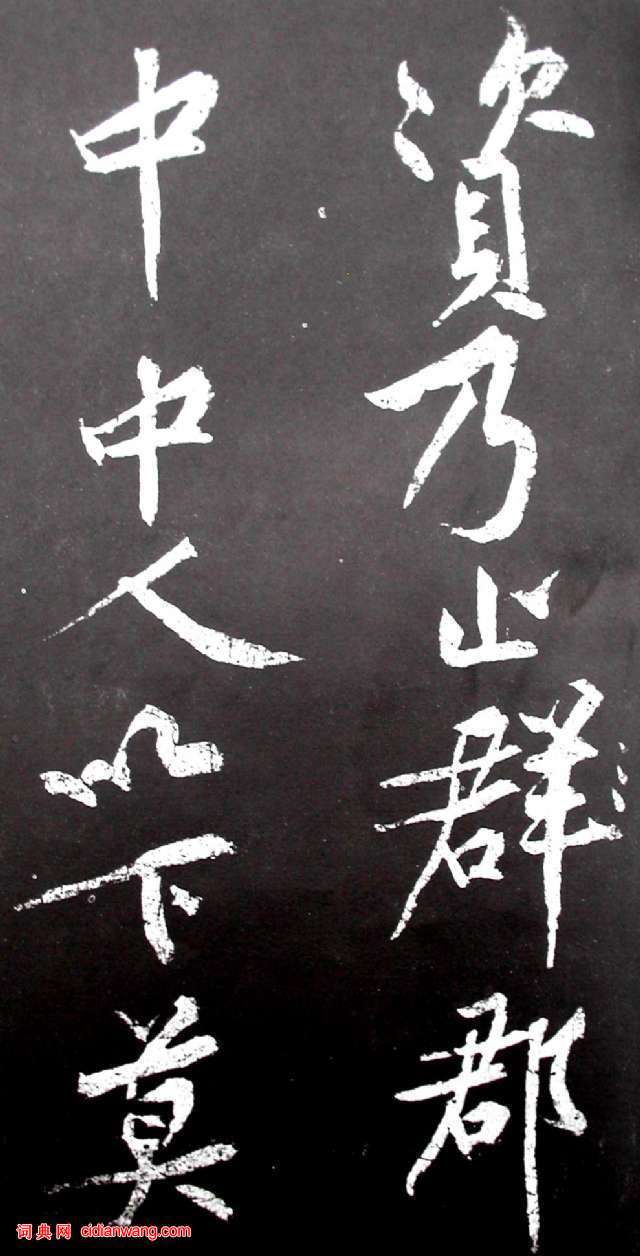 资乃止群郡
中中人以下莫
词典网 cidianwang.com